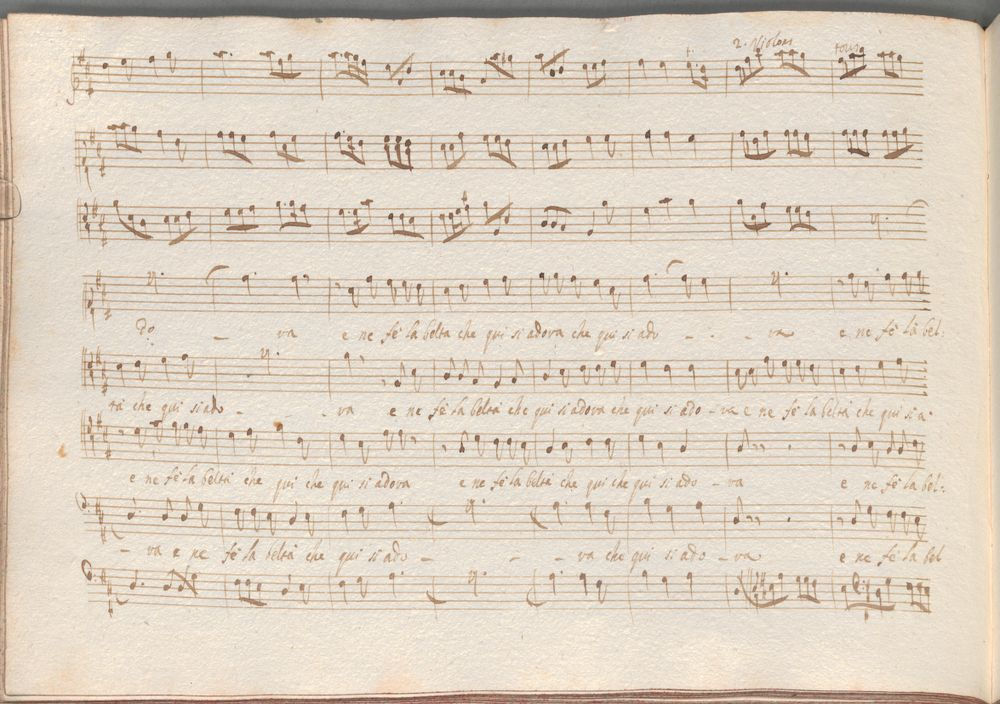 2. Violons tous
do - va e ne fè la beltà che qui si adora che qui si ado - - - va e ne fè la bel:
tà che qui si ado - - - va e ne fè la beltà che qui si adora che qui si ado - va e ne fè la beltà che qui si a:
e ne fè la beltà che qui che qui si adora e ne fè la beltà che qui che qui si ado - va e ne fè la bel:
- va e ne fè la beltà che qui si ado - - - va che qui si ado - va e ne fè la bel